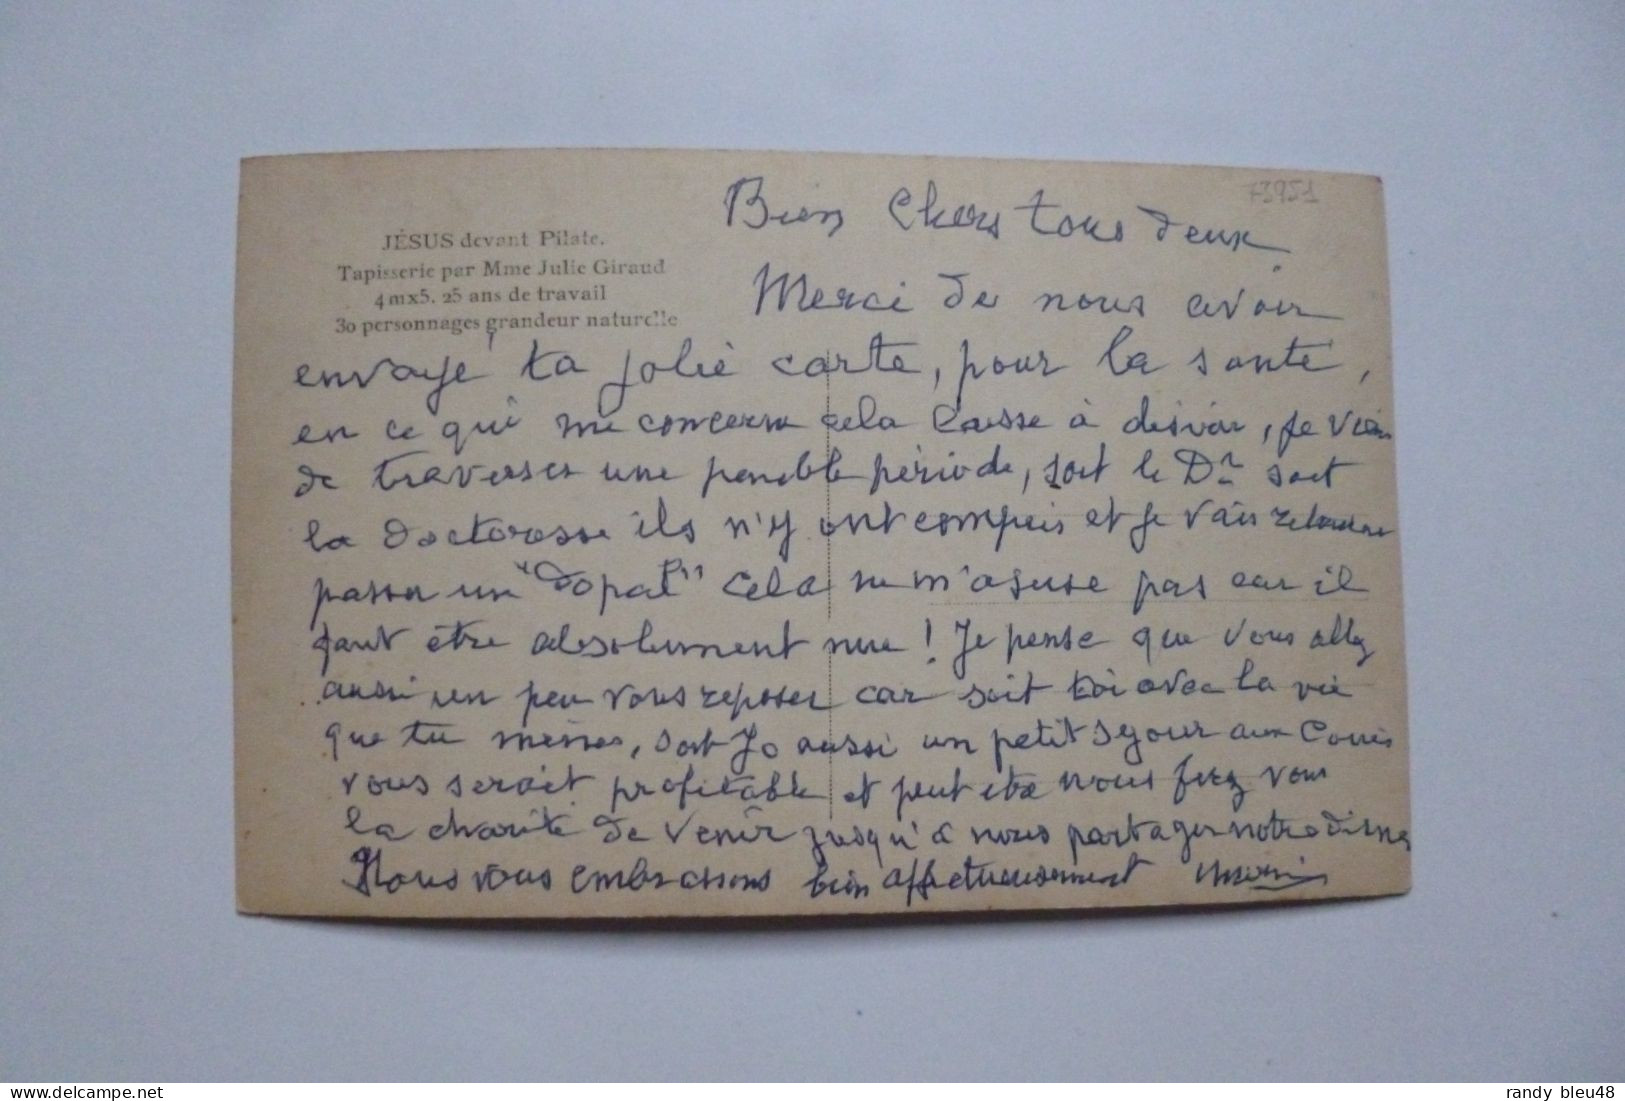 73951
JÉSUS devant Pilate.
Tapisserie par Mme Julie Giraud
4mx5. 25 ans de travail
30 personnages grandeur naturelle
Bien Chers tous deux
Merci de nous avoir
envoyé ta jolie carte, pour la santé,
en ce qui me concerne cela laisse à désirer, je viens
de traverser une penible période, soit le Dr soit
la doctoresse ils n'y ont compris et je vais retourner
passer un "dopal" Cela ne m'amuse pas car il
faut être absolument nue! Je pense que vous allez
aussi un peu vous reposer car soit toi avec la vie
que tu mènes, soit Jo aussi un petit séjour aux
vous serait profitable et peut être nous ferez vous
la charité de venir jusqu'à nous partager notre diner
Nous vous embrassons bien affectueusement
randy bleu48